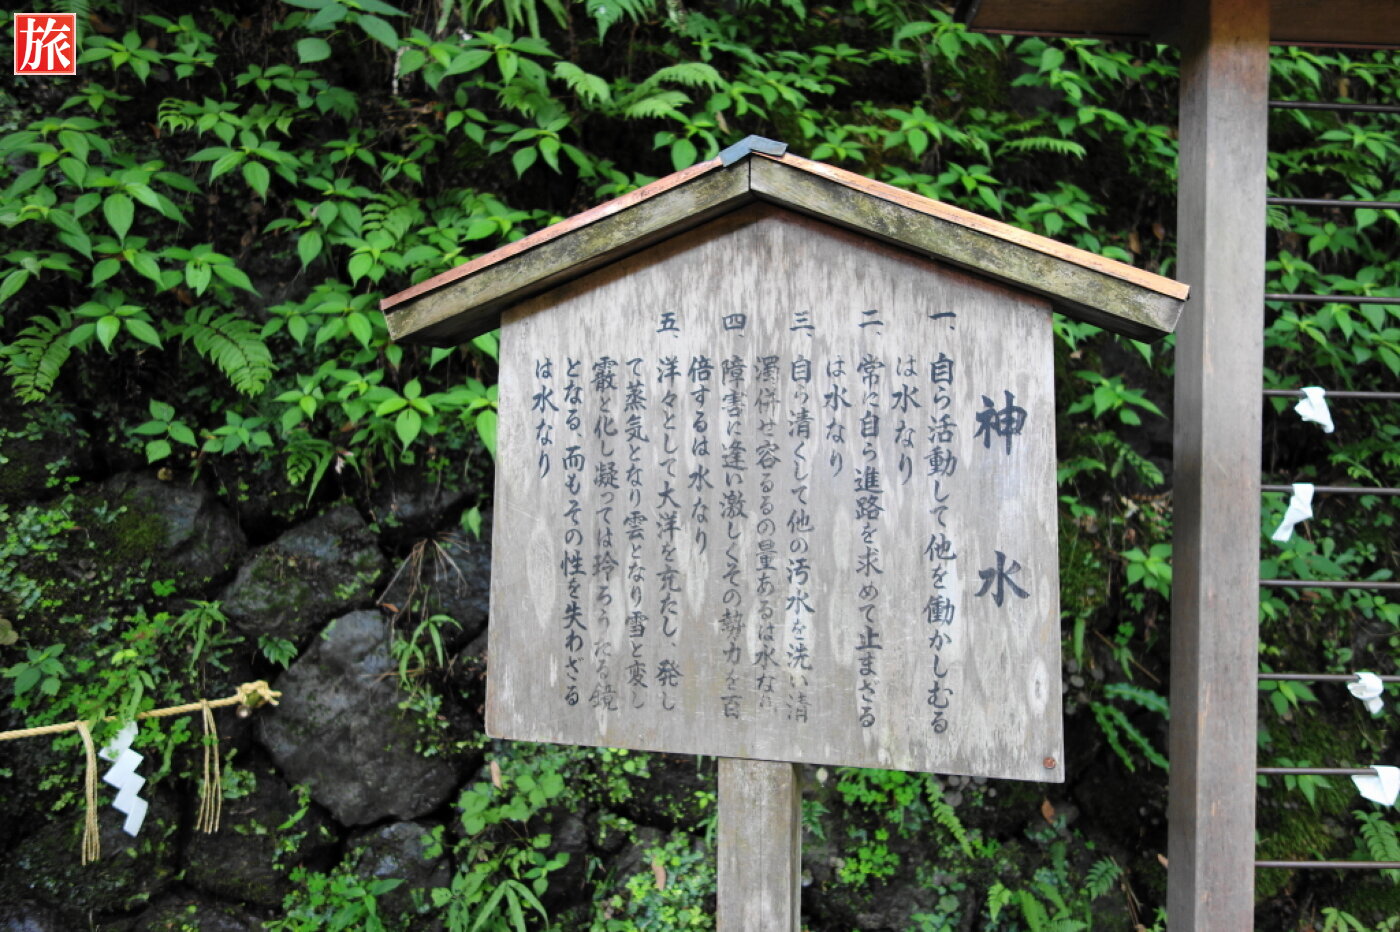 旅
神水
一、自ら活動して他を働かしむる
は水なり
二、常に自ら進路を求めて止まざる
は水なり
三、自ら清くして他の汚水を洗い清
濁併せ容るるの量あるは水なり
四、障害に逢い激しくその勢力を百
倍するは水なり
五、洋々として大洋を充たし、発し
て蒸気となり雲となり雪と変し
霰と化し凝っては玲ろうたる鏡
となる、而もその性を失わざる
は水なり